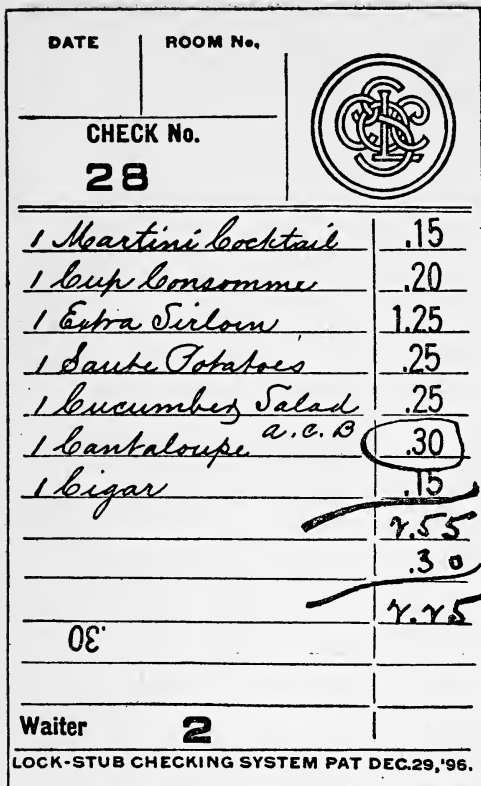 DATE ROOM No.
CHECK No.
28
1 Martini Cocktail .15
1 Cup Consomme .20
1 Extra Sirloin 1.25
1 Saute Potatoes .25
1 Cucumber Salad .25
1 Cantaloupe a.c.B .30
1 Cigar .15
2.55
.30
2.25
.30
Waiter 2
LOCK-STUB CHECKING SYSTEM PAT DEC.29,'96.